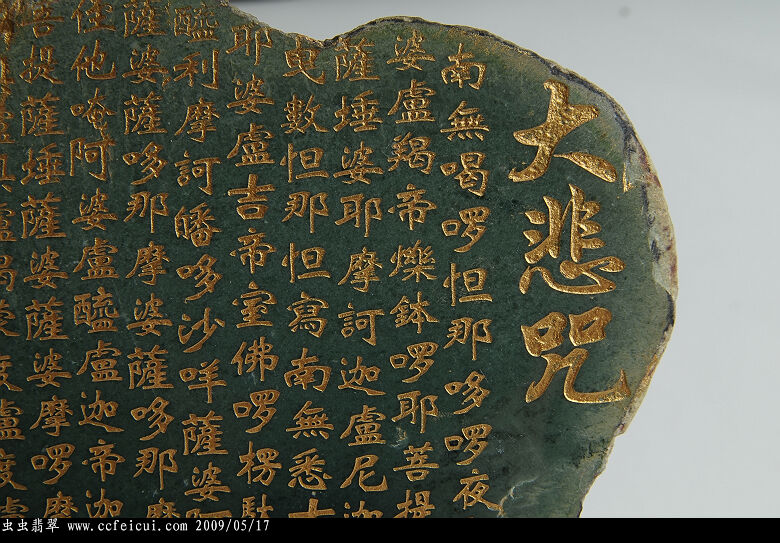 大悲咒
南無喝啰怛那哆啰夜
婆盧羯帝爍鉢啰耶菩提
薩埵婆耶摩訶迦盧尼迦
曳數怛那怛寫南無悉
耶婆盧吉帝室佛啰楞馱
醯利摩訶皤哆沙咩薩婆阿
薩婆薩哆那摩婆薩哆那摩
他唵阿婆盧醯盧迦帝迦
菩提薩埵薩婆薩婆摩啰摩
盧羯蒙度盧度盧
虫虫翡翠 www.ccfeicui.com 2009/05/17